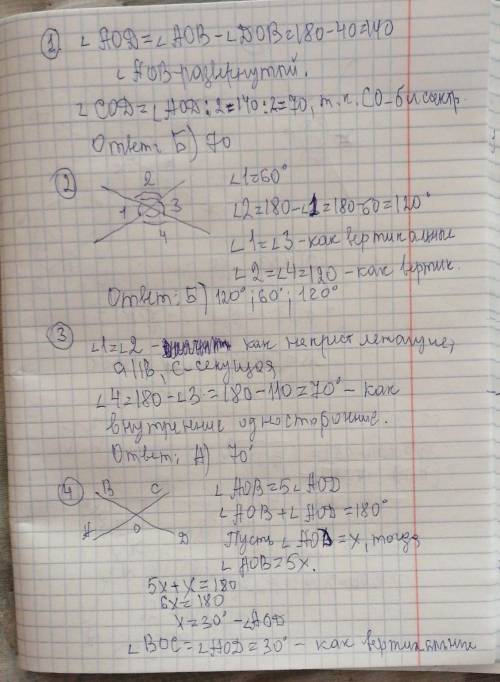 1. ∠AOD=∠AOB-∠DOB=180-40=140
∠AOB-развернутый.
∠COD=∠AOD:2=140:2=70, т.к. CO-биссектр.
Ответ: Б) 70
2
2
1 3
4
∠1=60°
∠2=180-∠1=180-60=120°
∠1=∠3-как вертикальные
∠2=∠4=120-как вертик.
Ответ: Б) 120°; 60°; 120°
3
∠1=∠2 - как
a||b, c-секущая
∠4=180-∠3=180-110=70°-как
внутренние односторонние.
Ответ: А) 70°
4
B C
A O D
∠AOB=5∠AOD
∠AOB+∠AOD=180°
Пусть ∠AOD=x, тогда
∠AOB=5x.
5x+x=180
6x=180
x=30°-∠AOD
∠BOC=∠AOD=30°-как вертикальные